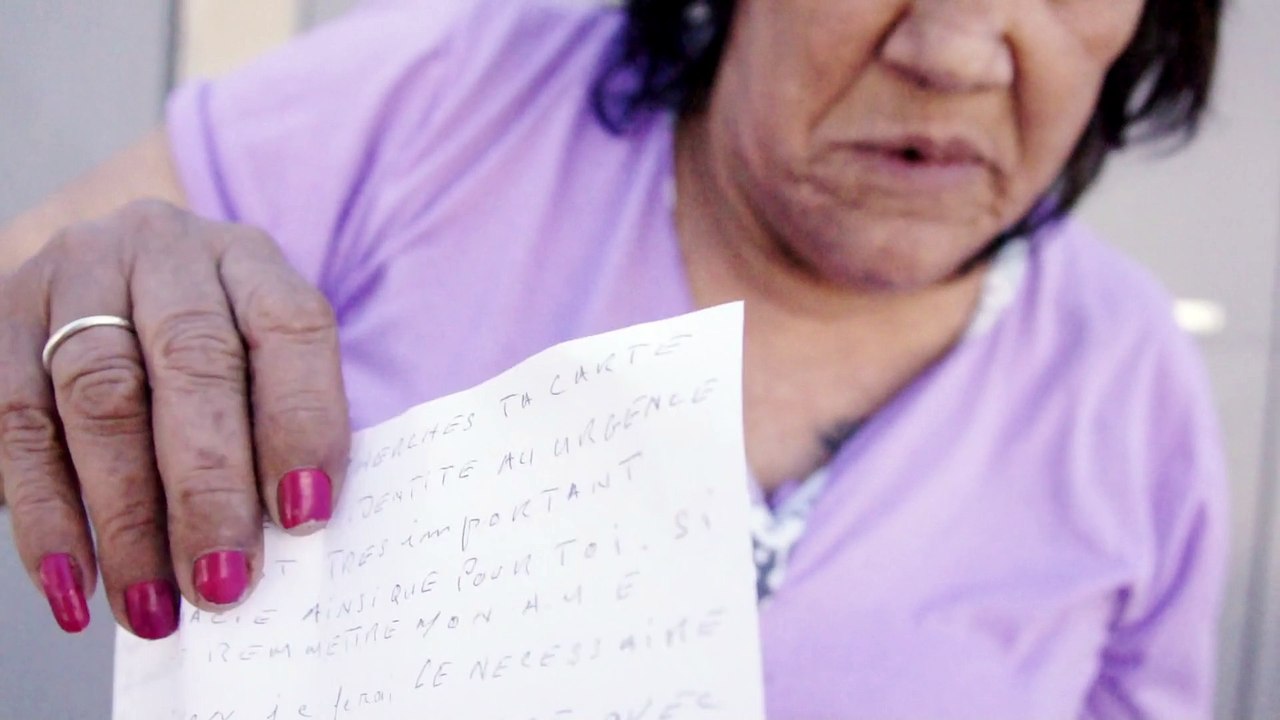 HERCHES TA CARTE
IDENTITE AU URGENCE
T TRES imPORTANT
AINSI QUE POUR TOI. Si
REMMETTRE MON AME
je ferai LE NECESSAIRE
AVEC